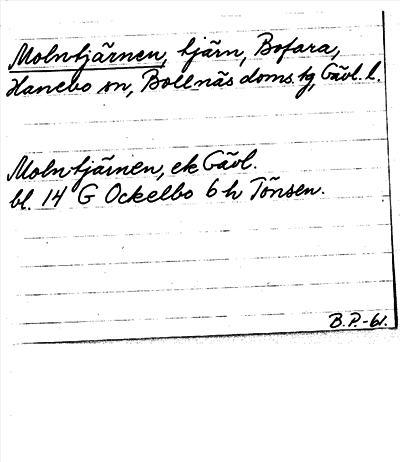 Molntjärnen, tjärn, Bofara,
Hanebo sn, Bollnäs doms. tg, Gävl. l.
Molntjärnen, ek Gävl.
bl. 14 G Ockelbo 6 h Tönsen.
B.P.-61.